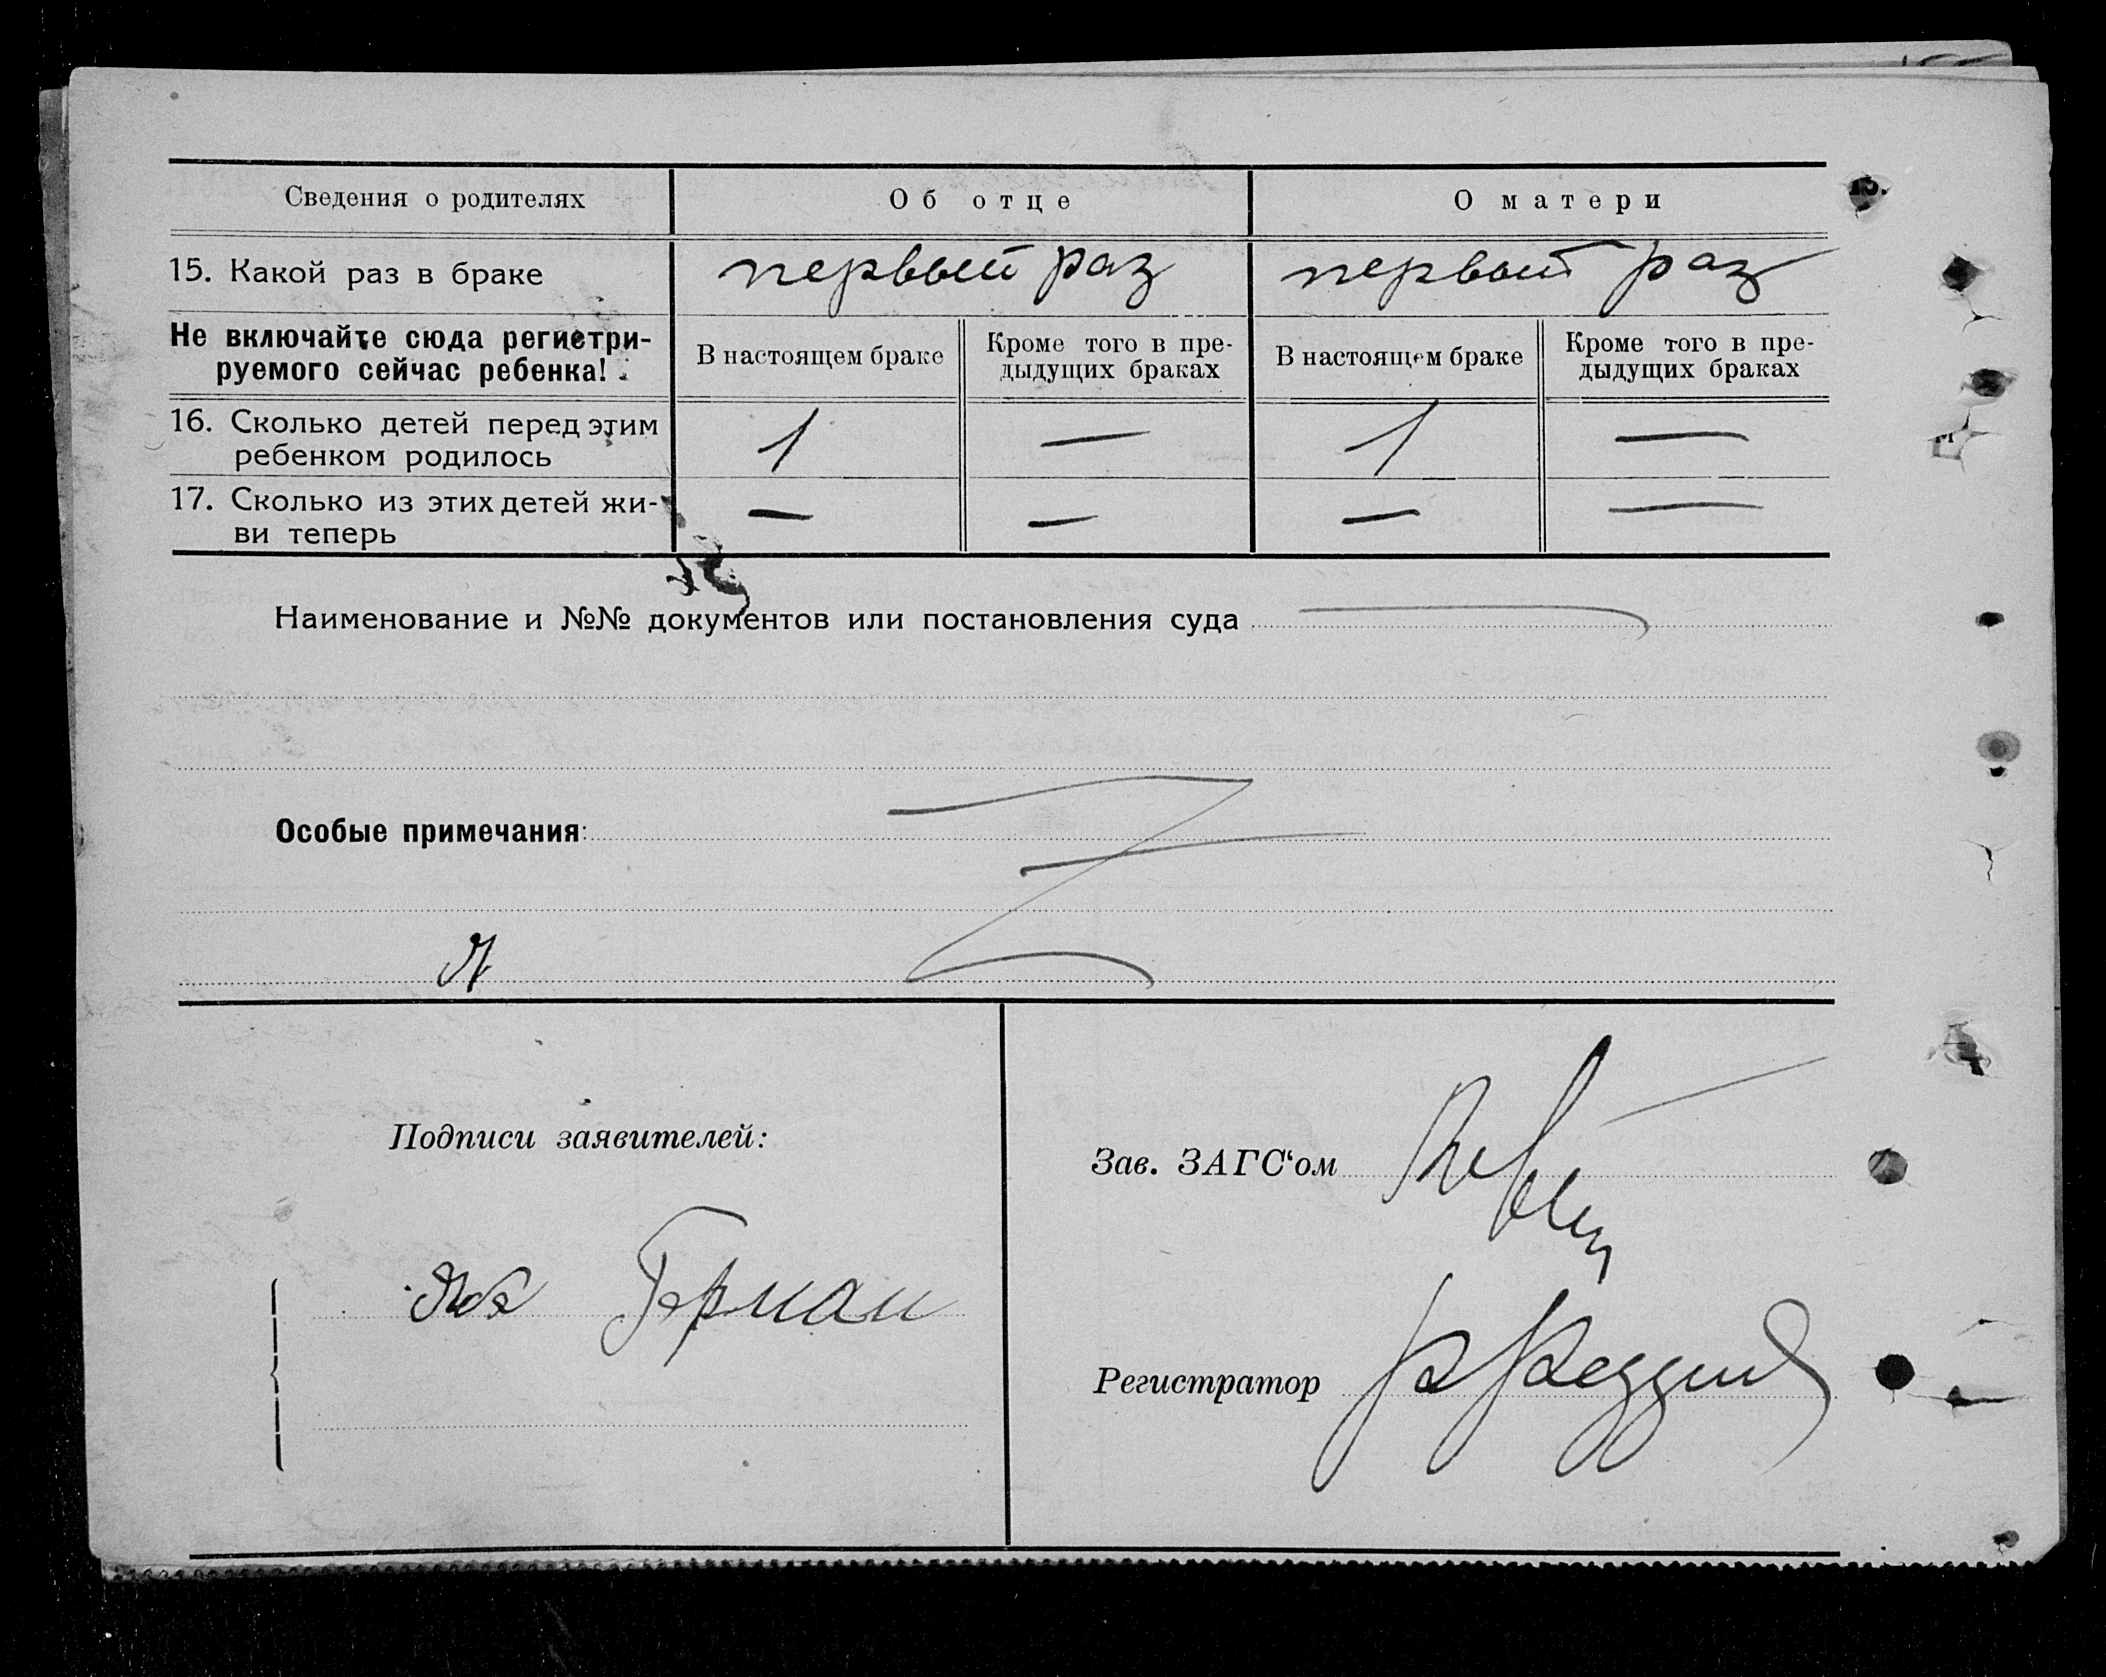 Сведения о родителях Об отце О матери
15. Какой раз в браке первый раз первый раз
Не включайте сюда регистри-
руемого сейчас ребенка!
В настоящем браке Кроме того в пре-
дыдущих браках
В настоящем браке Кроме того в пре-
дыдущих браках
16. Сколько детей перед этим
ребенком родилось
1 — 1 —
17. Сколько из этих детей жи-
ви теперь
— — — —
Наименование и №№ документов или постановления суда —
Особые примечания:
Подписи заявителей:
Зав. ЗАГС‘ом
Герман
Регистратор